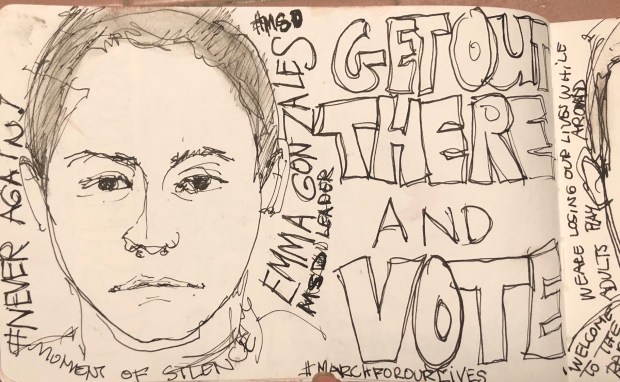 #NEVER AGAIN!
MOMENT OF SILENCE
#MSD
EMMA GONZALES
MSD LEADER
GET OUT
THERE
AND
VOTE
#MARCHFOROURLIVES
WE ARE LOSING OUR LIVES WHILE
ADULTS PLAY AROUND
WELCOME
TO THE